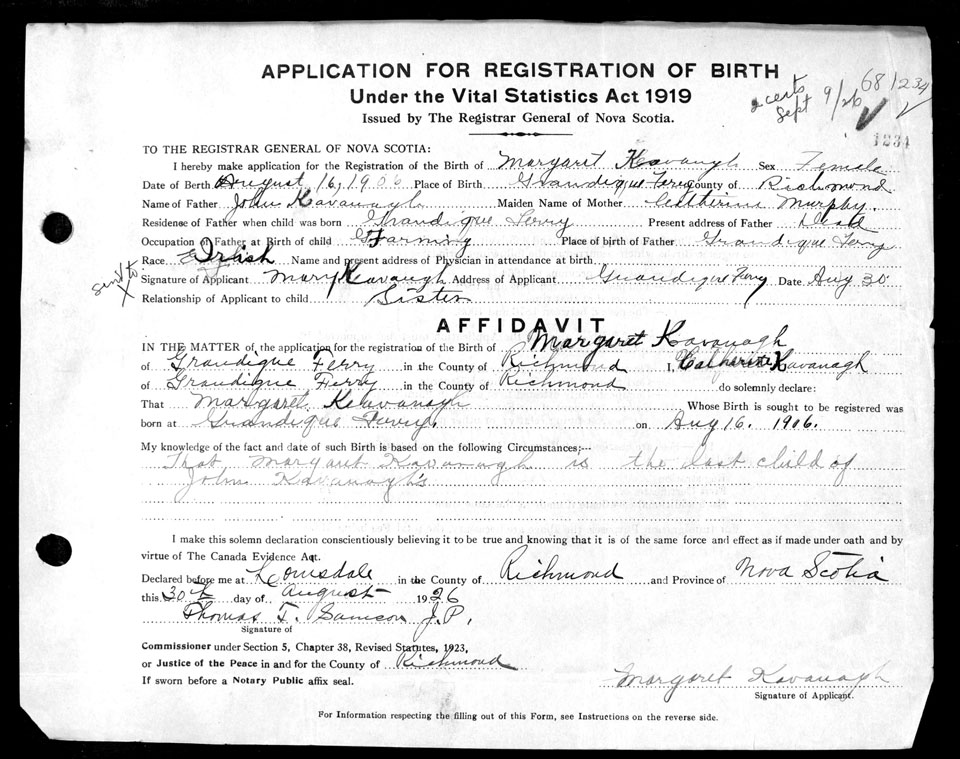 APPLICATION FOR REGISTRATION OF BIRTH
Under the Vital Statistics Act 1919
Issued by The Registrar General of Nova Scotia.
2 certs Sept 9/26
681234
1234
TO THE REGISTRAR GENERAL OF NOVA SCOTIA:
I hereby make application for the Registration of the Birth of Margaret Kavaugh Sex Female
Date of Berth August, 16, 1906 Place of Birth Grandique Ferry County of Richmond
Name of Father John Kavanagh Maiden Name of Mother Catherine Murphy.
Residene of Father when child was born Grandique Ferry Present address of Father Dead
Occupation of Father at Birth of child Farming Place of birth of Father Grandique Ferry
Race Irish Name and present address of Physician in attendance at birth
Sent to
Signature of Applicant Mary Kavaugh Address of Applicant Grandique Ferry Date Aug 30
Relationship of Applicant to child Sister
AFFIDAVIT
IN THE MATTER of the application for the registration of the Birth of Margaret Kavanagh
of Grandique Ferry in the County of Richmond I, Catherine Kavanagh
of Grandique Ferry in the County of Richmond do solemnly declare:
That Margaret Kavanagh Whose Birth is sought to be registered was
born at Grandique Ferry. on Aug 16. 1906.
My knowledge of the fact and date of such Birth is based on the following Circumstances;---
That Margaret Kavanagh is the last child of
John Kavanagh's
I make this solemn declaration conscientiously believing it to be true and knowing that it is of the same force and effect as if made under oath and by
virtue of The Canada Evidence Act.
Declared before me at Louisdale in the County of Richmond and Province of Nova Scotia
this 30th day of August 1926
Thomas T. Samson J.P.
Signature of
Commissioner under Section 5, Chapter 38, Revised Statutes, 1923,
or Justice of the Peace in and for the County of Richmond
If sworn before a Notary Public affix seal.
Margaret Kavanagh
Signature of Applicant.
For Information respecting the filling out of this Form, see Instructions on the reverse side.